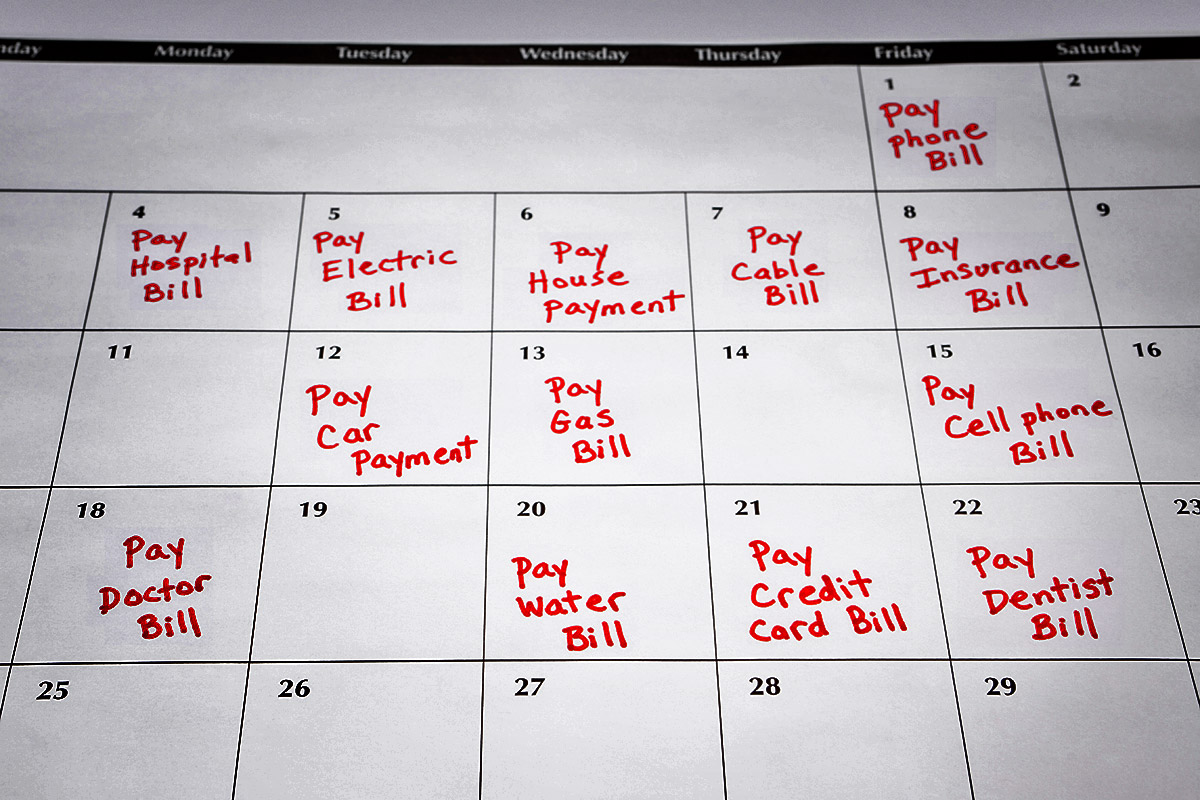 nday Monday Tuesday Wednesday Thursday Friday Saturday
1 2
Pay
phone
Bill
4 5 6 7 8 9
Pay
Hospital
Bill
Pay
Electric
Bill
Pay
House
Payment
Pay
Cable
Bill
Pay
Insurance
Bill
11 12 13 14 15 16
Pay
Car
Payment
Pay
Gas
Bill
Pay
Cell phone
Bill
18 19 20 21 22 23
Pay
Doctor
Bill
Pay
Water
Bill
Pay
Credit
Card Bill
Pay
Dentist
Bill
25 26 27 28 29